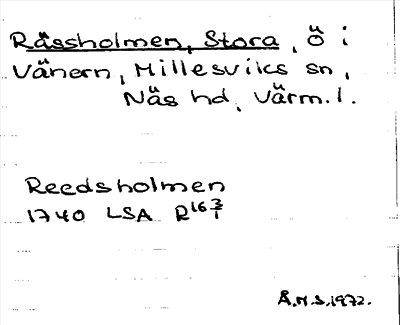 Rässholmen, Stora, ö i
Vänern, Millesviks sn,
Näs hd, Värm.l.
Reedsholmen
1740 LSA R16 3/1
Å.H.S.1972.